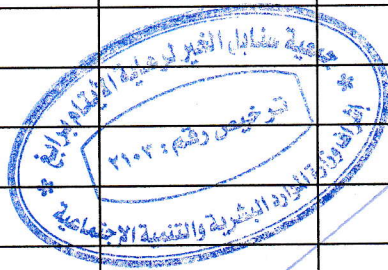 جمعية سنابل الخير لرعاية الأيتام برابغ
ترخيص رقم: ٢١٠٢
إشراف وزارة الموارد البشرية والتنمية الاجتماعية